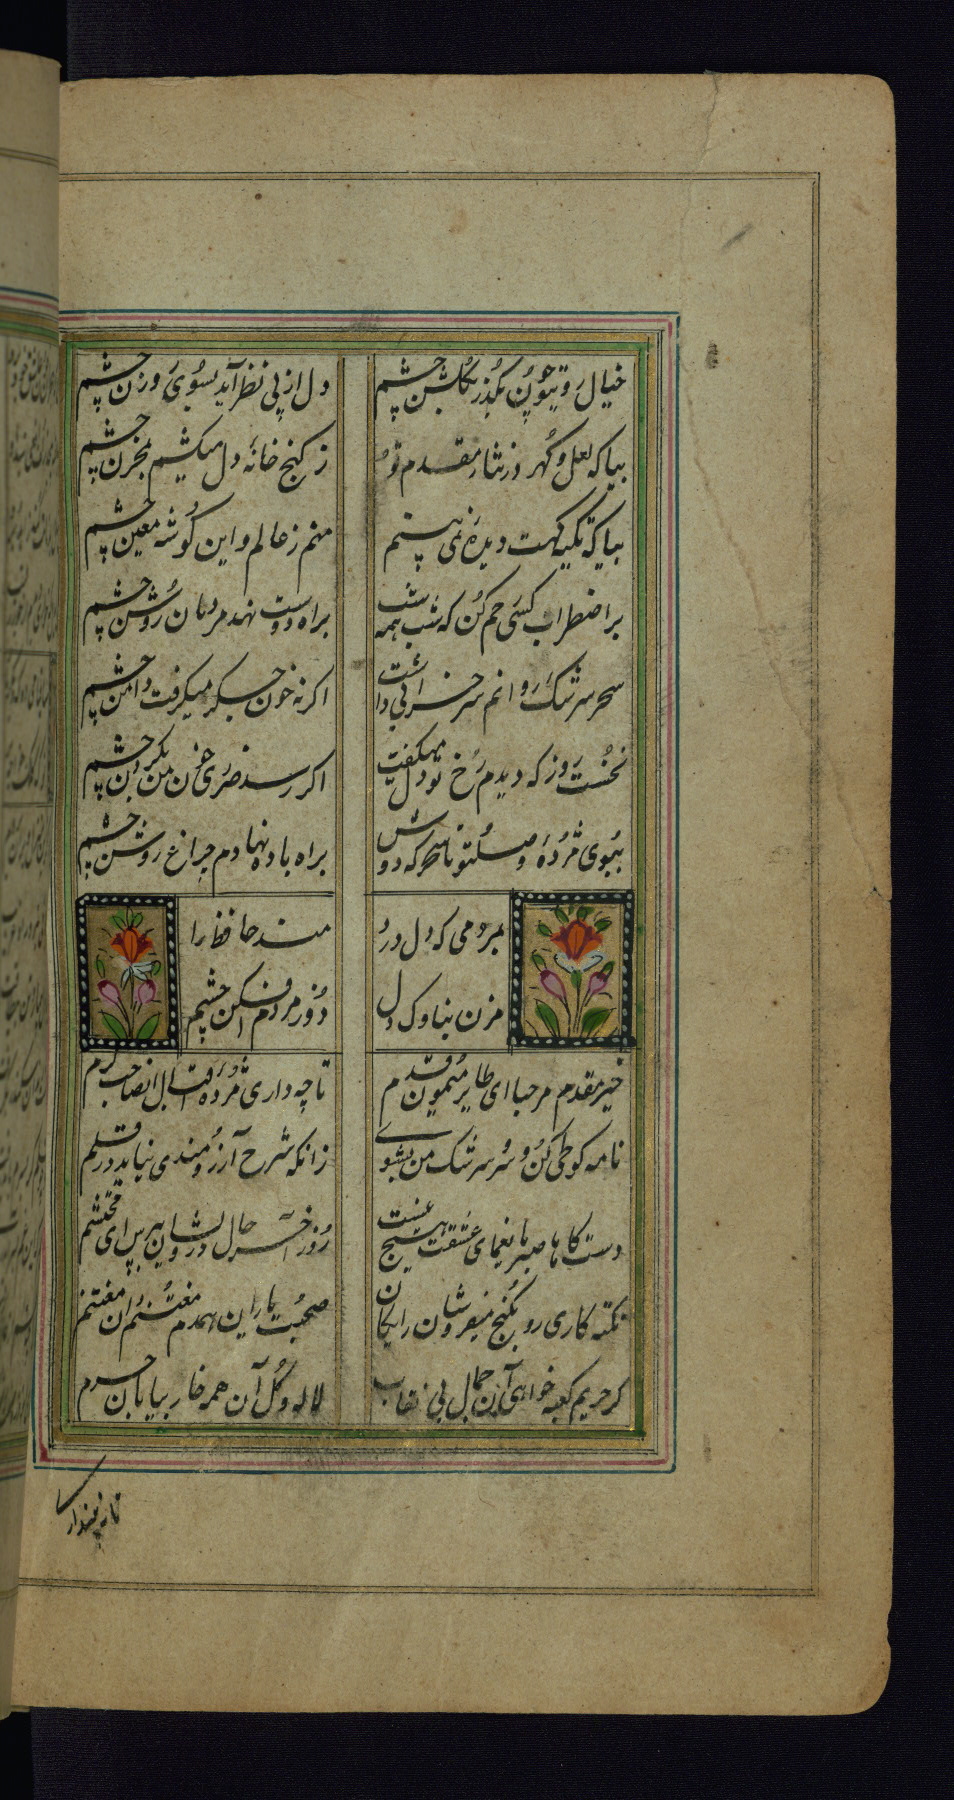 خیال روی تو چون بگذرد بگلشن چشم
دل از پی نظر آید بسوی روزن چشم
بیا که لعل و گهر در نثار مقدم تو
ز کنج خانهٔ دل میکشم بمخزن چشم
بیا که تکیه گهت دیده نمی بینم
منم ز عالم و این گوشه معین چشم
بر اضطراب کسی رحم کن که شب همه شب
براه دوست نهد مردمان روشن چشم
سحر سرشک روانم سر خرابی داشت
اگر نه خون جگر میگرفت دامن چشم
نخست روز که دیدم رخ تو دل میگفت
اگر رسد ضرری خون من بگردن چشم
ببوی مژدهٔ وصلتو تا سحرکه دوش
براه باد نهادم چراغ روشن چشم
بمردمی که دل درد
مند حافظ را
مزن بناوک دل
دوز مردم افکن چشم
خیر مقدم مرحبا ای طایر میمون قدم
تا چه داری مژده اقبال از صاحب کرم
نامه کوطی کن و سر سرشک من بشوی
زانکه شرح آرزومندی نیاید در قلم
دستگاه صبر با یغمای عشقت هیچ نیست
روز آخر حال درویشان بپرس ای محتشم
نکته کاری رو بکنج میفروشان رایگان
صحبت یاران همدم مغتنم دان مغتنم
گر حریم کعبه خواهی آن جمال بی نقاب
لاله و گل آن همه خار بیابان حرم
تا نه پنداری